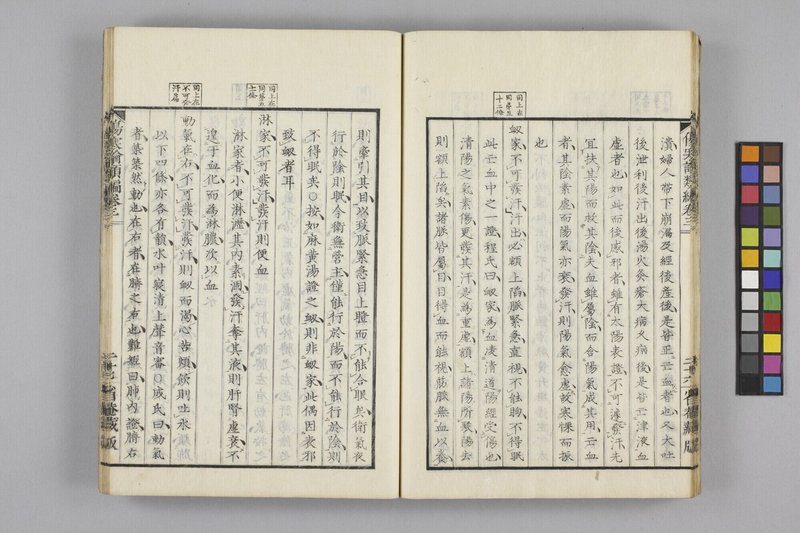 漬婦人帶下崩漏及經後産後是皆正亡血者也又大吐
後泄利後汗出後湯火灸瘡大病久病後是皆亡津液血
虛者也如此而後感邪者雖有太陽表證不可遽發汗先
宜扶其陽而救其陰夫血雖屬陰而合陽氣成其用亡血
者其陰素虛而陽氣亦衰發汗則陽氣愈虛故寒慄而振
也
同上在
同第五
十二條
衄家不可發汗汗出必額上陷脈緊急直視不能眴不得眠
此亡血中之一證程氏曰衄家為血淩清道陽經受傷也
清陽之氣素傷更發其汗是為重虛額上諸陽所聚陽去
則額上陷矣諸脈皆屬目目得血而能視筋脈無血以養
則牽引其目以致脈緊急目上瞪而不能合眼矣衛氣夜
行於陰則眠今衛無營主僅能行於陽而不能行於陰則
不得眠矣○按如麻黃湯證之衄則非衄家此偶因表邪
致衄者耳
同上在
同第五
淋家不可發汗發汗則便血
淋家者小便淋瀝其內素涸發汗奪其液則肝腎虛衰不
遑于血化而為淋膿次以血
同上在
不可發
汗篇
動氣在右不可發汗發汗則衄而渴心苦煩飲則吐水
以下四條亦各有韻水叶寢清上聲音審○成氏曰動氣
者築築然動也在右者在臍之右也難經曰肺內證臍右
傷寒論類編卷三
二十